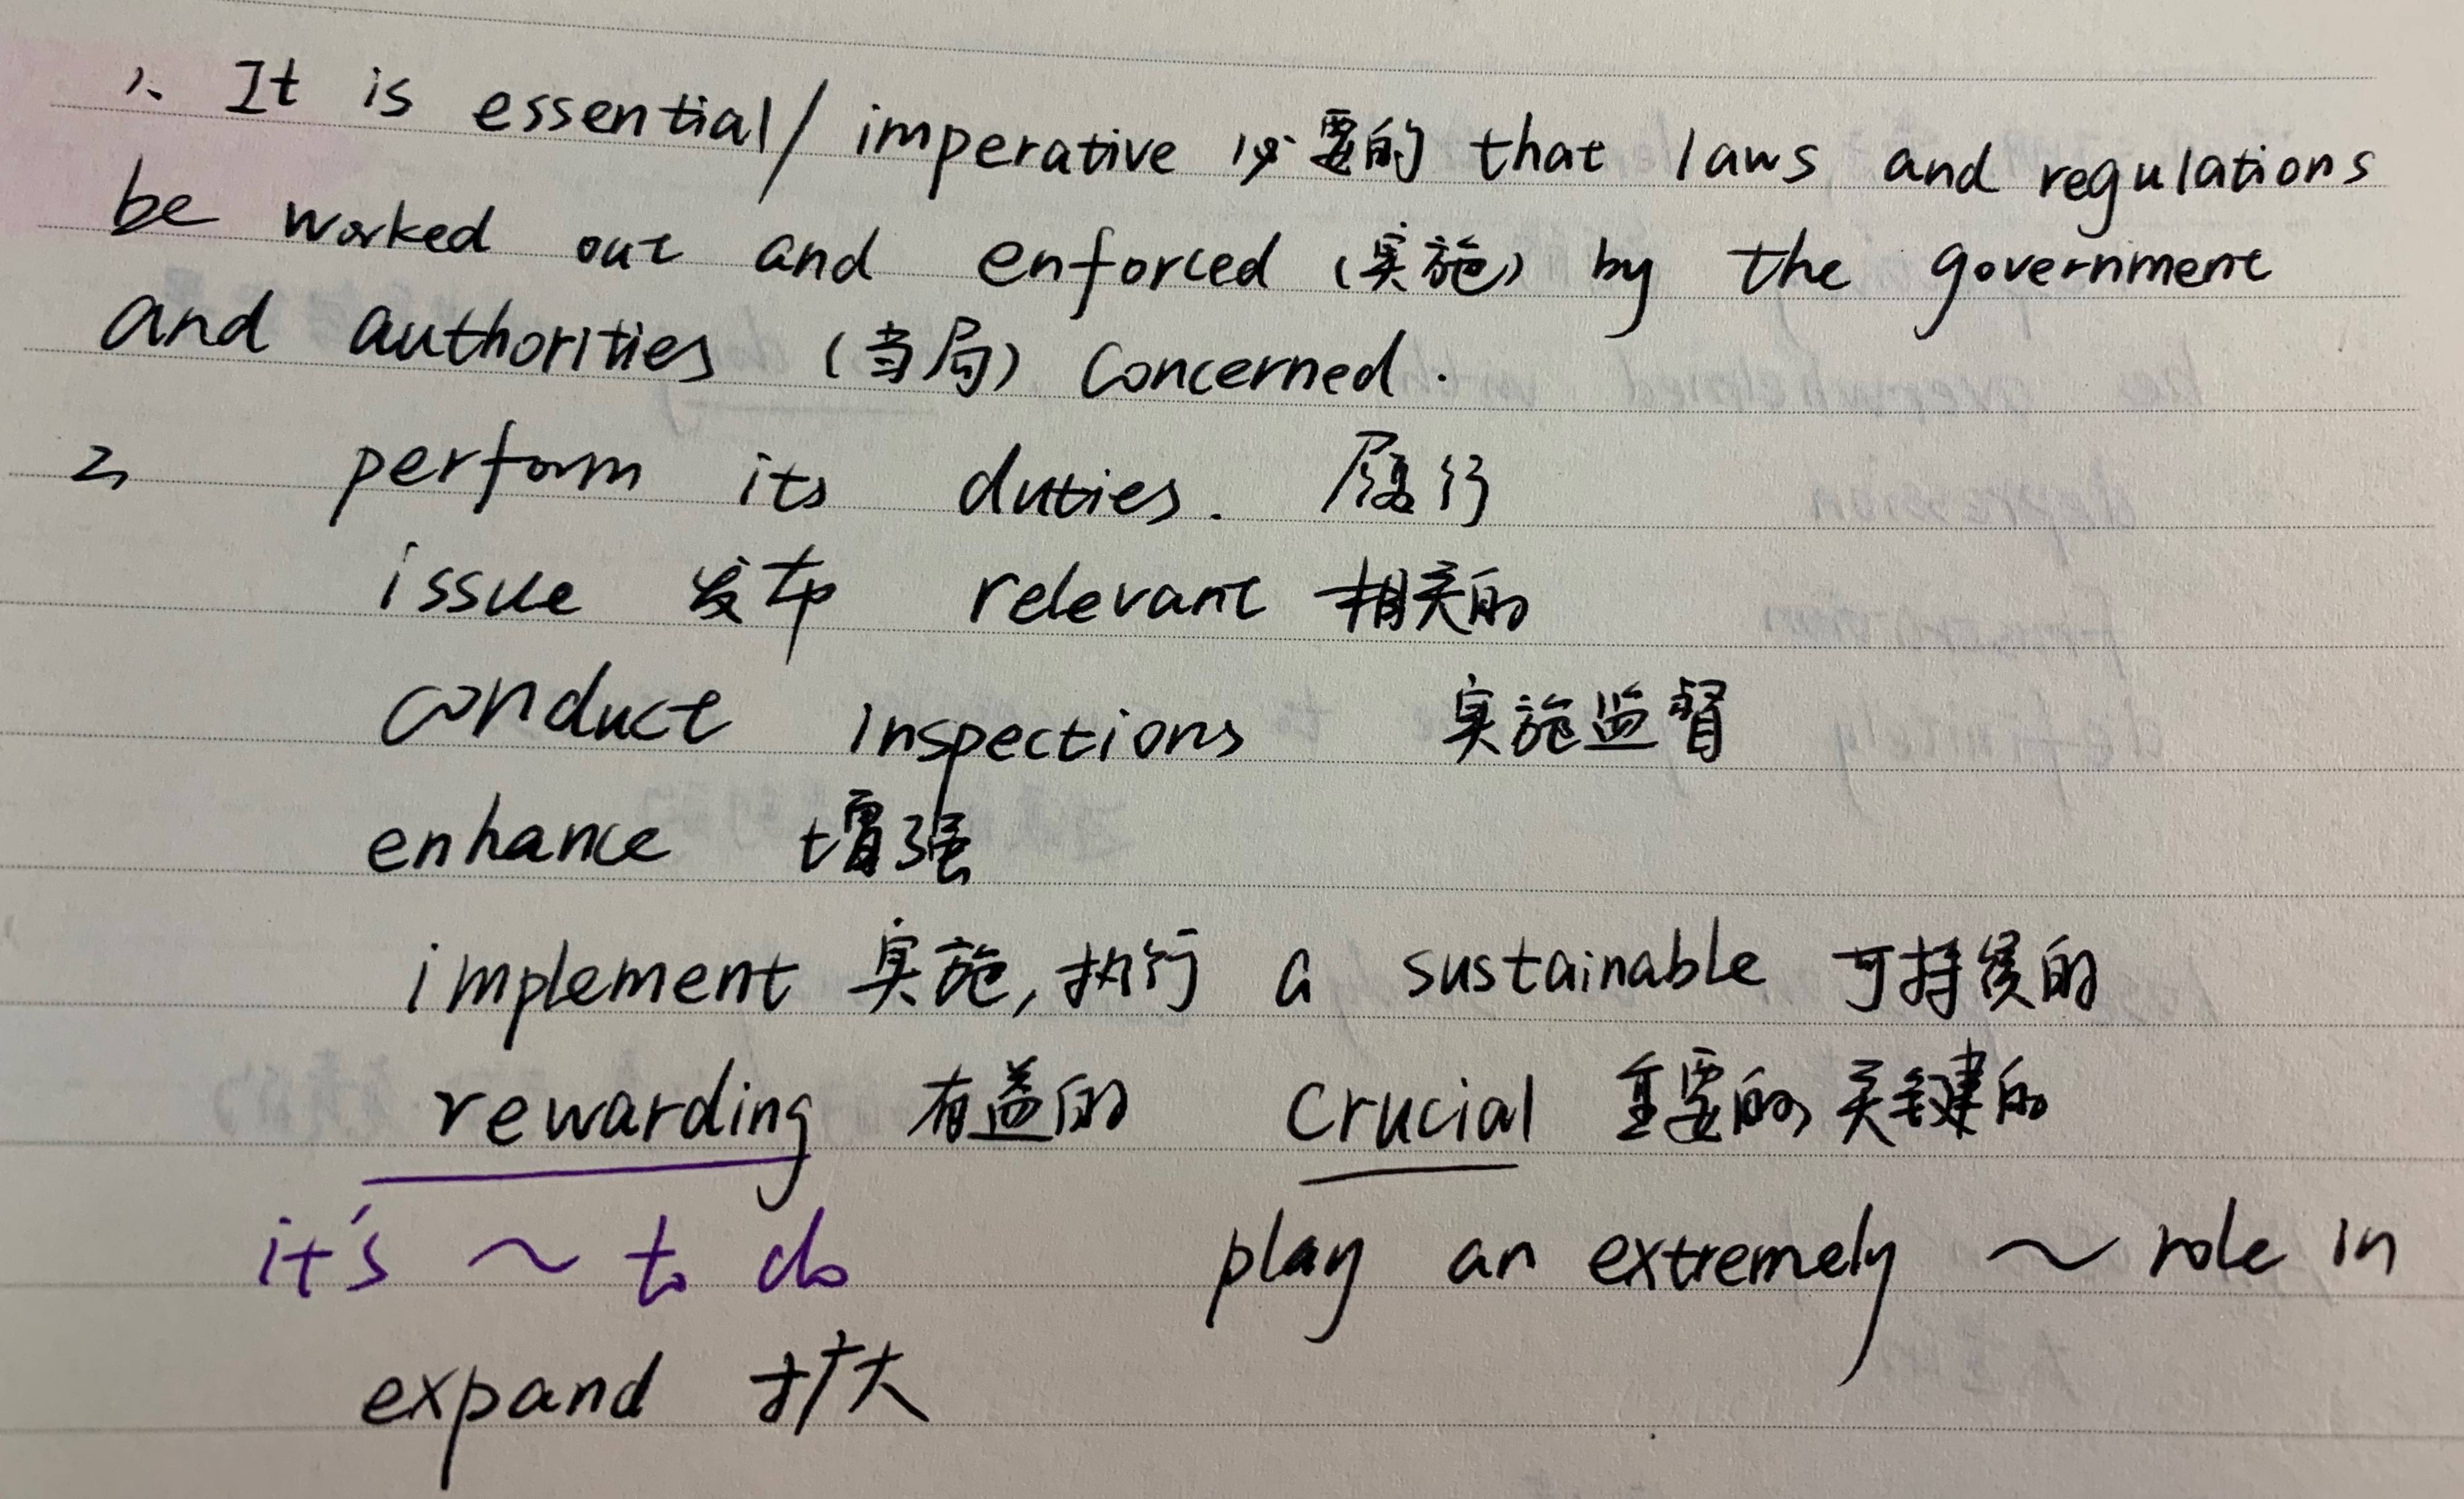 1. It is essential/ imperative 必要的 that laws and regulations
be worked out and enforced (实施) by the government
and authorities (当局) concerned.
2 perform its duties. 履行
issue 发布 relevant 相关的
conduct inspections 实施监督
enhance 增强
implement 实施, 执行 a sustainable 可持续的
rewarding 有益的 crucial 重要的, 关键的
it's ~ to do play an extremely ~ role in
expand 扩大